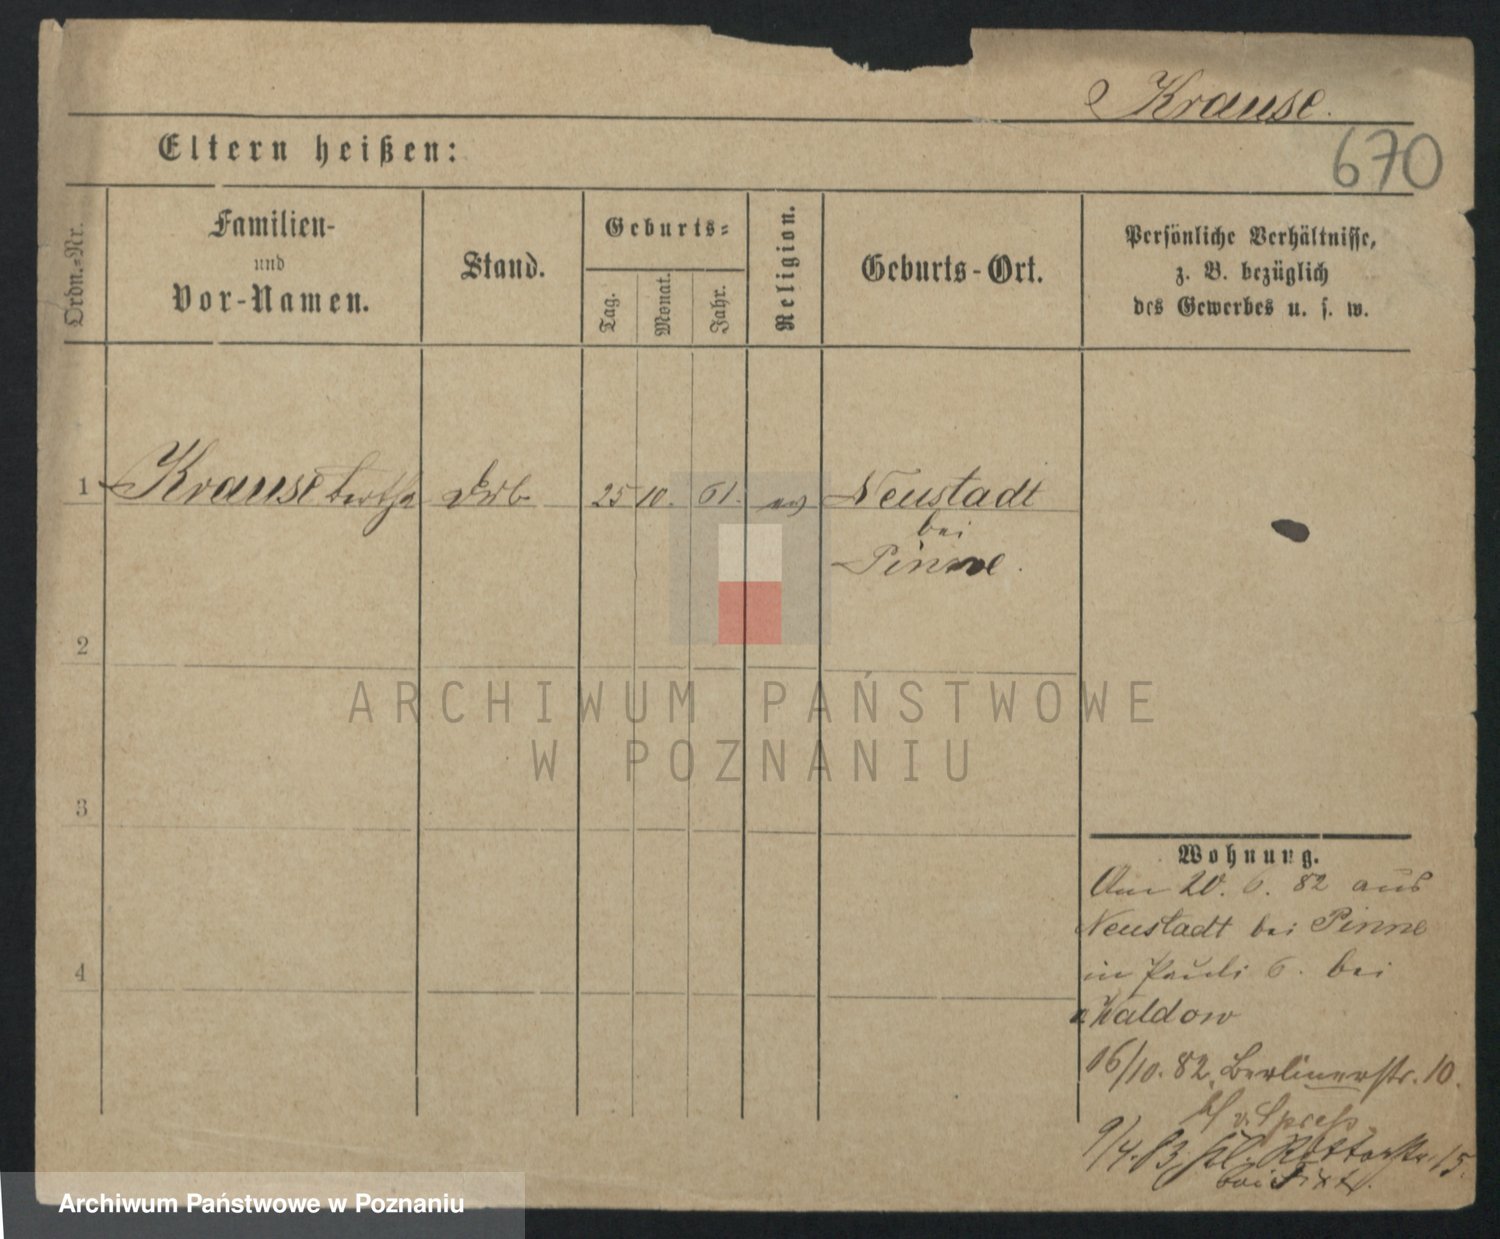 Krause.
670
Eltern heißen:
Ordn.-Nr.
Familien-
und
Vor-Namen.
Stand.
Geburts-
Tag.
Monat.
Jahr.
Religion.
Geburts-Ort.
Persönliche Verhältnisse,
z. B. bezüglich
des Gewerbes u. s. w.
1 Krause Bertha 25 10. 61. ev Neustadt
bei
Pinne.
2
3
4
Wohnung.
Am 20. 6. 82 aus
Neustadt bei Pinne
in Pauli 6. bei
v. Waldow
16/10. 82. Berlinerstr. 10.
9/4. 83, Kl. Ritterstr. 15.
bei
ARCHIWUM PAŃSTWOWE
W POZNANIU
Archiwum Państwowe w Poznaniu